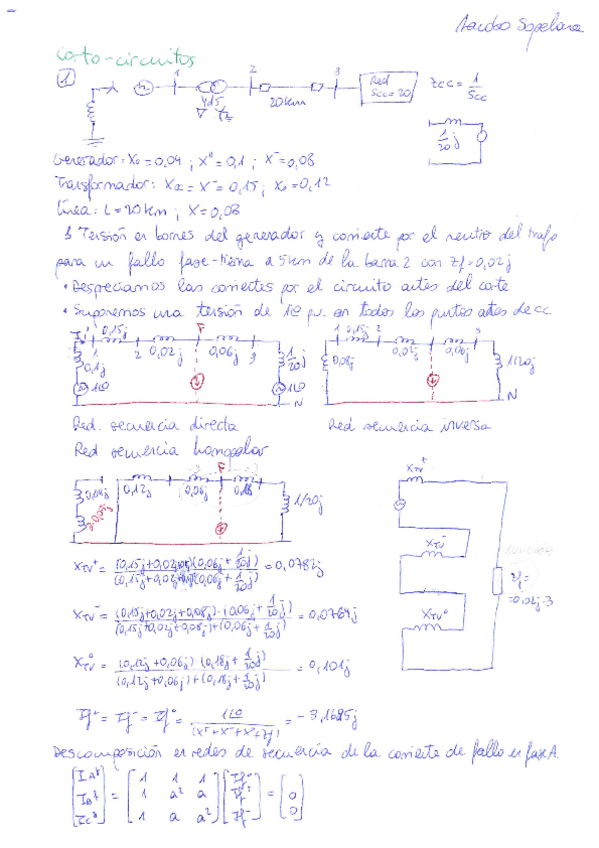 Jacobo
Corto-circuitos
1
1 2 3
Yd5
20km
Red
Scc=20
Zcc = 1/Scc
1/20 j
Generador: Xo=0,04 ; X"=0,1 ; X⁻=0,08
Transformador: Xcc = X⁻ = 0,15 ; Xo=0,12
Línea: L=20km ; X=0,08
Tensión en bornes del generador y corriente por el neutro del trafo
para un fallo fase-tierra a 5km de la barra 2 con Zf=0,02j
• Despreciamos las corrientes por el circuito antes del corte
• Suponemos una tensión de 1|0 pu. en todos los puntos antes de cc
0,15j F
1 2 0,02j 0,06j 3 1/20 j
0,1j
1|0 1|0
N
1 0,15j 2 3
0,08j 0,02j 0,06j 1/20j
N
Red. secuencia directa Red secuencia inversa
Red secuencia homopolar
F
0,04j 0,12j 0,06j 0,18 1/20j
XTh⁺ = (0,15j+0,02j+0,1j)(0,06j+1/20j) / (0,15j+0,02j+0,1j)+(0,06j+1/20j) = 0,0782j
XTh⁻ = (0,15j+0,02j+0,08j)·(0,06j+1/20j) / (0,15j+0,02j+0,08j)+(0,06j+1/20j) = 0,0764j
XTh⁰ = (0,12j+0,06j)(0,18j+1/20j) / (0,12j+0,06j)+(0,18j+1/20j) = 0,101j
XTh⁺
XTh⁻
XTh⁰
Zf=
=0,02j·3
If⁺ = If⁻ = If⁰ = 1|0 / (X⁺+X⁻+X⁰+Zf) = -3,1685j
Descomposición en redes de secuencia de la corriente de fallo en fase A.
[IAf] = [1 1 1] [If⁰]
[IBf] = [1 a² a] [If⁺] = [0]
[ICf] = [1 a a²] [If⁻] [0]